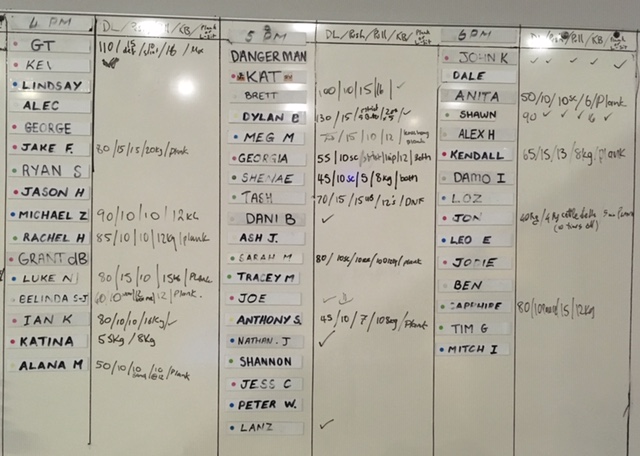 4 PM DL/Push/Pull/KB/Plank
GT 110/15/10/16/Max
KEV
LINDSAY
ALEC
GEORGE
JAKE F. 80/15/15/20kg/plank
RYAN S
JASON H
MICHAEL Z 90/10/10/12KG
RACHEL H 85/10/10/12kg/plank
GRANT dB
LUKE N 80/15/10/15kg/Plank
BELINDA S-J
IAN K 80/10/10/16kg/✓
KATINA 55kg/8kg
ALANA M 50/10/10/plank
5 PM DL/Push/Pull/KB/Plank
DANGERMAN
KAT
BRETT 100/10/15/16/✓
DYLAN B 130/15
MEG M 75/15/10/12
GEORGIA 55/10sc/12/Both
SHENAE 45/10sc/5/8kg/both
TASH 70/15/DNF
DANI B ✓
ASH J.
SARAH M 80/plank
TRACEY M
JOE ✓
ANTHONY S. 45/10/7/108kg/Plank
NATHAN. J ✓
SHANNON
JESS C
PETER W.
LANZ ✓
6PM DL/Push/Pull/KB/Plank
JOHN K ✓ ✓ ✓ ✓ ✓
DALE
ANITA 50/10/10sc/6/Plank
SHAWN 90 ✓ ✓ 6 ✓
ALEX H
KENDALL 65/15/13/8kg/plank
DAMO I
LOZ
JON
LEO E
JODIE
BEN
SAPPHIRE 80/15/12kg
TIM G
MITCH I